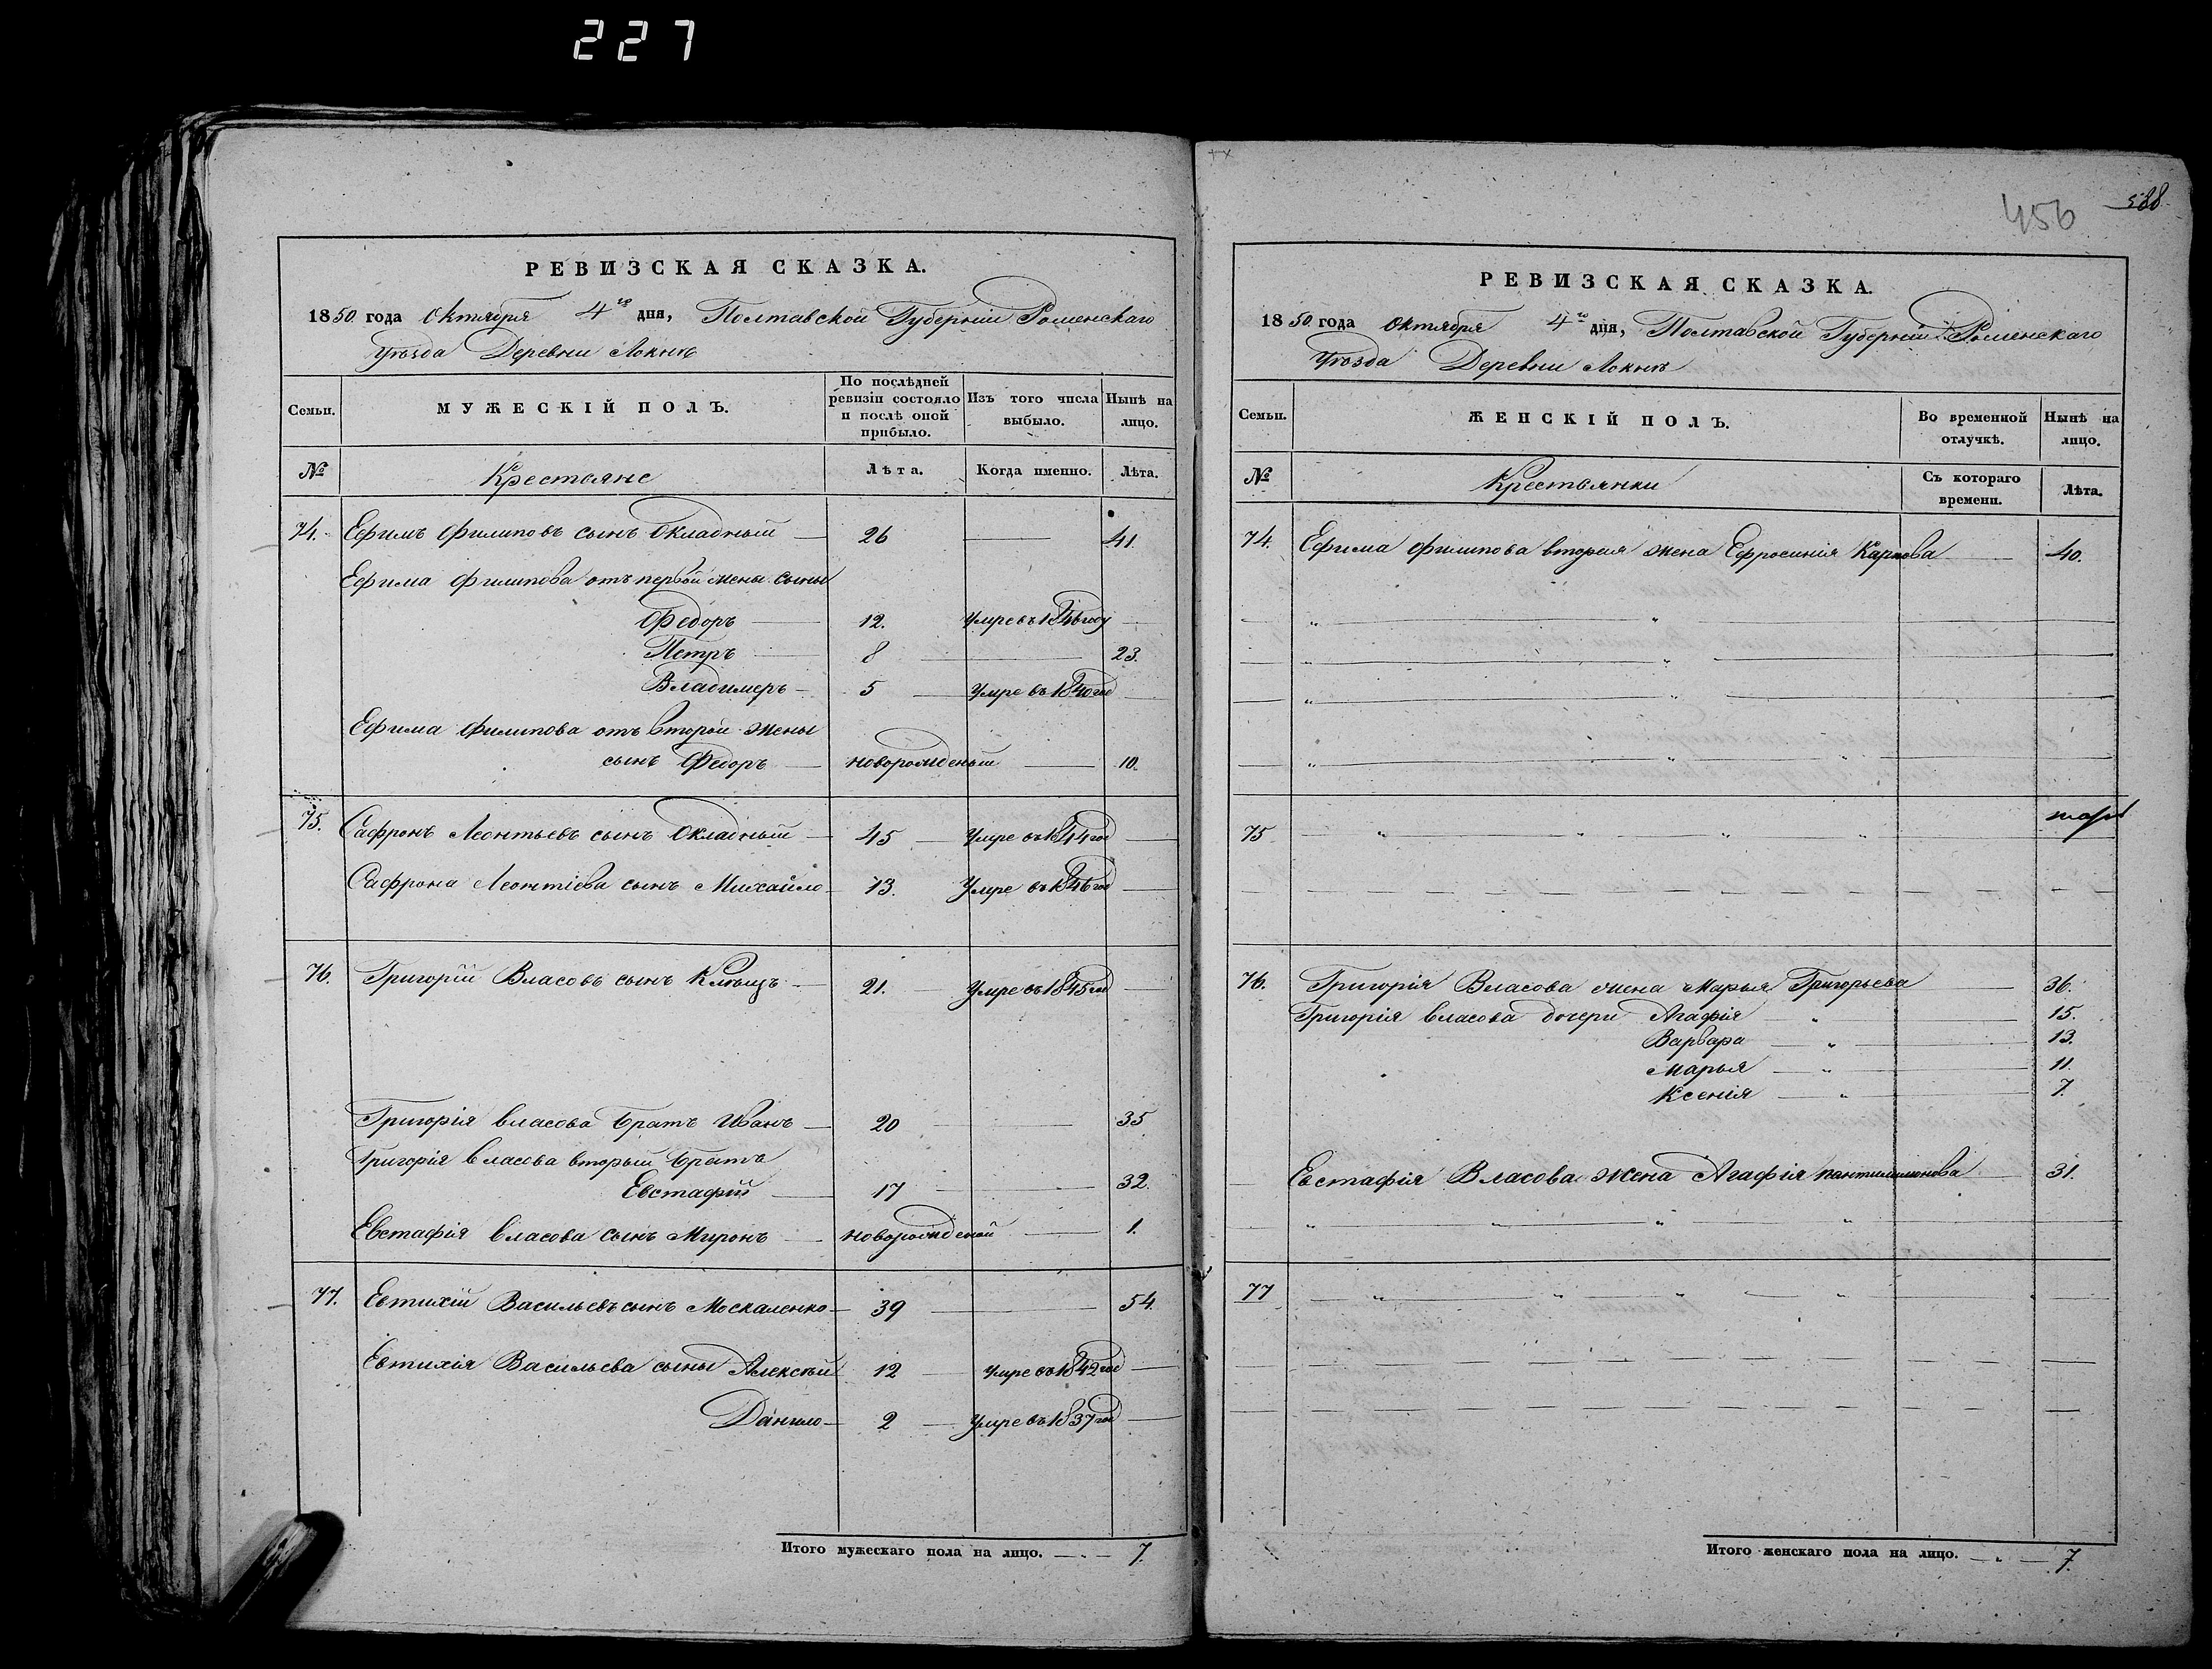 227
РЕВИЗСКАЯ СКАЗКА.
1850 года Октября 4го дня, Полтавской Губернiи Роменскаго
Уѣзда Деревни Локнѣ
Семьи. МУЖЕСКIЙ ПОЛЪ. По послѣдней ревизiи состояло и послѣ оной прибыло. Изъ того числа выбыло. Нынѣ на лицо.
№ Крестьяне Лѣта. Когда именно. Лѣта.
74. Ефимъ Филиповъ сынъ Окладный 26 41
Ефима Филипова отъ первой жены сыны
Федоръ 12. Умре въ 1846 году
Петръ 8 23.
Владимеръ 5 Умре въ 1840 год
Ефима Филипова отъ второй жены
сынъ Федоръ новорожденый 10.
75. Сафронъ Леонтьевъ сынъ Окладный 45 Умре въ 1844 год
Сафрона Леонтiева сынъ Михайло 13. Умре въ 1846 год
76. Григорiй Власовъ сынъ 21. Умре въ 1845 год
Григорiя Власова братъ Иванъ 20 35
Григорiя Власова вторый братъ
Евстафiй 17 32.
Евстафiя Власова сынъ Миронъ новорожденой 1.
77. Евтихiй Васильевъ сынъ Москаленко 39 54.
Евтихiя Васильева сыны Алексѣй 12 Умре въ 1842 год
Данило 2 Умре въ 1837 год
Итого мужескаго пола на лицо. 7.
456 588
РЕВИЗСКАЯ СКАЗКА.
1850 года Октября 4го дня, Полтавской Губернiи Роменскаго
Уѣзда Деревни Локнѣ
Семьи. ЖЕНСКIЙ ПОЛЪ. Во временной отлучкѣ. Нынѣ на лицо.
№ Крестьянки Съ котораго времени. Лѣта.
74. Ефима Филипова вторая жена Ефросинiя Карпова 40.
75
76. Григорiя Власова жена Марья Григорьева 36.
Григорiя Власова дочери Агафiя 15.
Варвара 13.
Марья 11.
Ксенiя 7.
Евстафiя Власова жена Агафiя Пантилимонова 31.
77
Итого женскаго пола на лицо. 7.